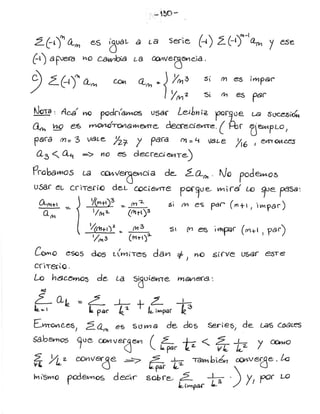 -130-
Σ(-1)^n a_m es igual a la serie (-1) Σ(-1)^{m-1} a_m y ese
(-1) afuera no cambia la convergencia.
c) Σ(-1)^m a_m con a_m = { 1/m³ si m es impar
1/m² si m es par
Nota: Acá no podríamos usar Leibniz porque la sucesión
a_m no es monótonamente decreciente. (Por ejemplo,
para m=3 vale 1/27 y para m=4 vale 1/16, entonces
a_3 < a_4 ⇒ no es decreciente)
Probamos la convergencia de Σ a_m. No podemos
usar el criterio del cociente porque mirá lo que pasa:
a_{m+1} / a_m = { 1/(m+1)³ / 1/m² = m² / (m+1)³ si m es par (m+1, impar)
1/(m+1)² / 1/m³ = m³ / (m+1)² si m es impar (m+1, par)
Como esos dos límites dan ≠, no sirve usar este
criterio.
Lo hacemos de la siguiente manera:
Σ_{k=1}^∞ a_k = Σ_{k par} 1/k² + Σ_{k impar} 1/k³
Entonces, Σ a_m es suma de dos series, de las cuales
sabemos que convergen ( Σ_{k par} 1/k² < Σ_{∀k} 1/k² y como
Σ_{∀k} 1/k² converge ⇒ Σ_{k par} 1/k² también converge. Lo
mismo podemos decir sobre Σ_{k impar} 1/k³ ) y, por lo